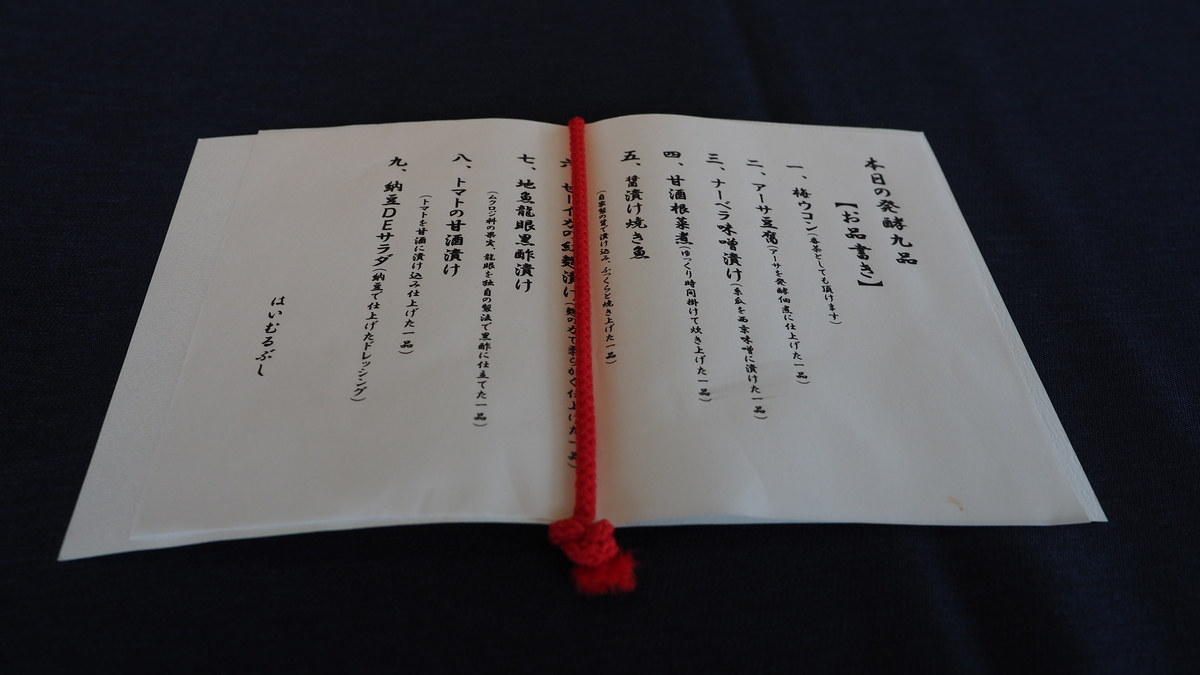 本日の発酵九品
【お品書き】
一、梅ウコン(番茶としても頂けます)
二、アーサ豆腐(アーサを発酵佃煮に仕上げた一品)
三、ナーベラ味噌漬け(糸瓜を西京味噌に漬けた一品)
四、甘酒根菜煮(ゆっくり時間掛けて炊き上げた一品)
五、醤漬け焼き魚
(自家製の醤で漬け込み、ふっくらと焼き上げた一品)
六、セーイカの紅麹漬け(麹の力で柔らかく仕上げた一品)
七、地魚龍眼黒酢漬け
(ムクロジ科の果実、龍眼を独自の製法で黒酢に仕立てた一品)
八、トマトの甘酒漬け
(トマトを甘酒に漬け込み仕上げた一品)
九、納豆DEサラダ(納豆で仕上げたドレッシング)
はいむるぶし